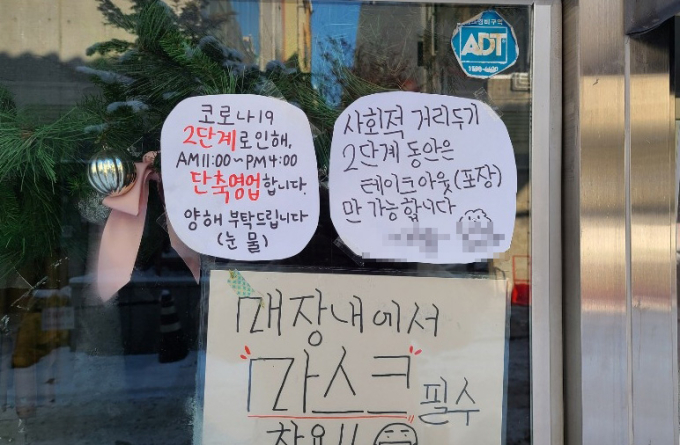 코로나19
2단계로인해,
AM11:00~PM4:00
단축영업합니다.
양해 부탁드립니다
(눈물)
사회적 거리두기
2단계 동안은
테이크아웃(포장)
만 가능합니다
ADT
매장내에서
"마스크" 필수
착용!!